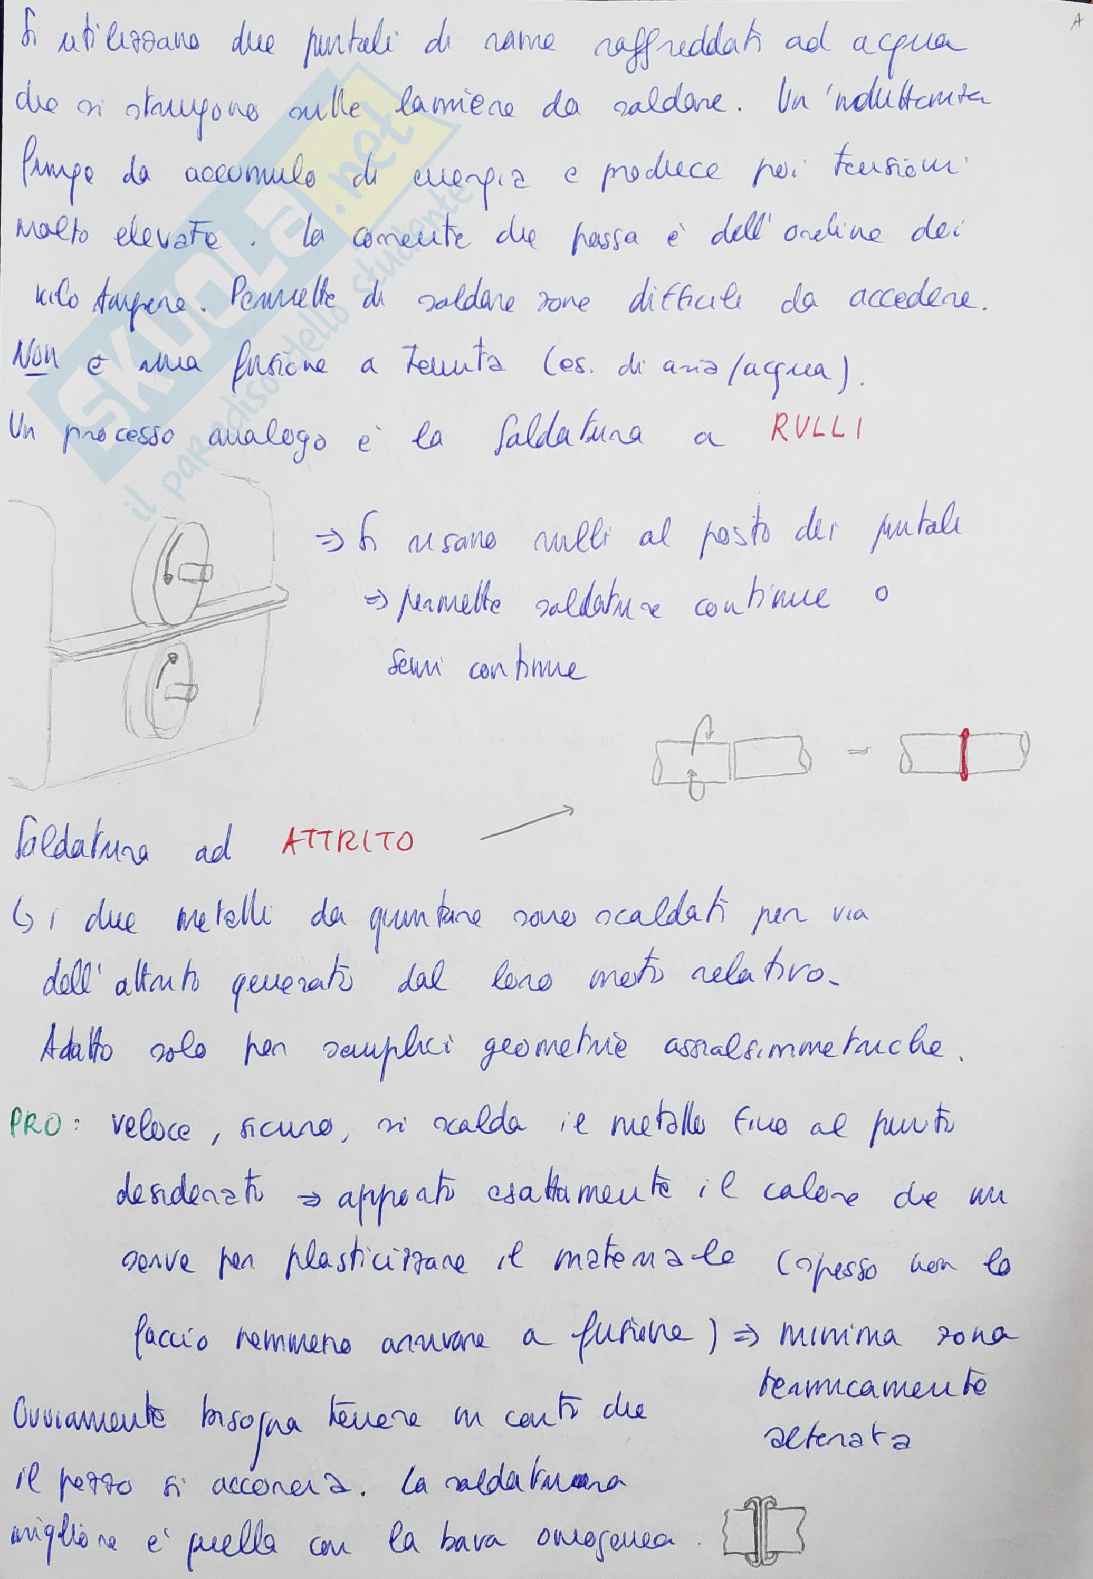 A
Si utilizzano due puntali di rame raffreddati ad acqua
che si stringono sulle lamiere da saldare. Un'induttanza
funge da accumulo di energia e produce poi tensioni
molto elevate. La corrente che passa è dell'ordine dei
kilo Ampere. Permette di saldare zone difficili da accedere.
Non è una fusione a tenuta (es. di aria/acqua).
Un processo analogo è la Saldatura a RULLI
SKUOLA.net
il paradiso dello studente
⇒ Si usano rulli al posto dei puntali
⇒ permette saldature continue o
semi continue
Saldatura ad ATTRITO
↳ i due metalli da giuntare sono scaldati per via
dell'attrito generato dal loro moto relativo.
Adatto solo per semplici geometrie assialsimmetriche.
PRO: veloce, sicuro, si scalda il metallo fino al punto
desiderato ⇒ apporto esattamente il calore che mi
serve per plasticizzare il materiale (spesso non lo
faccio nemmeno arrivare a fusione) ⇒ minima zona
termicamente
alterata
Ovviamente bisogna tenere in conto che
il pezzo si accorcia. La saldatura
migliore è quella con la bava omogenea.